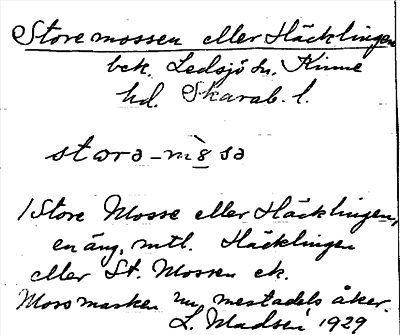 Store mossen eller Häcklingen
bek. Ledsjö sn. Kinne
hd. Skarab. l.
stora-mòsa
1 Store Mosse eller Häcklingen,
en äng, mtl. Häcklingen
eller St. Mossen ek.
Mossmarken nu mestadels åker.
L. Madsén 1929